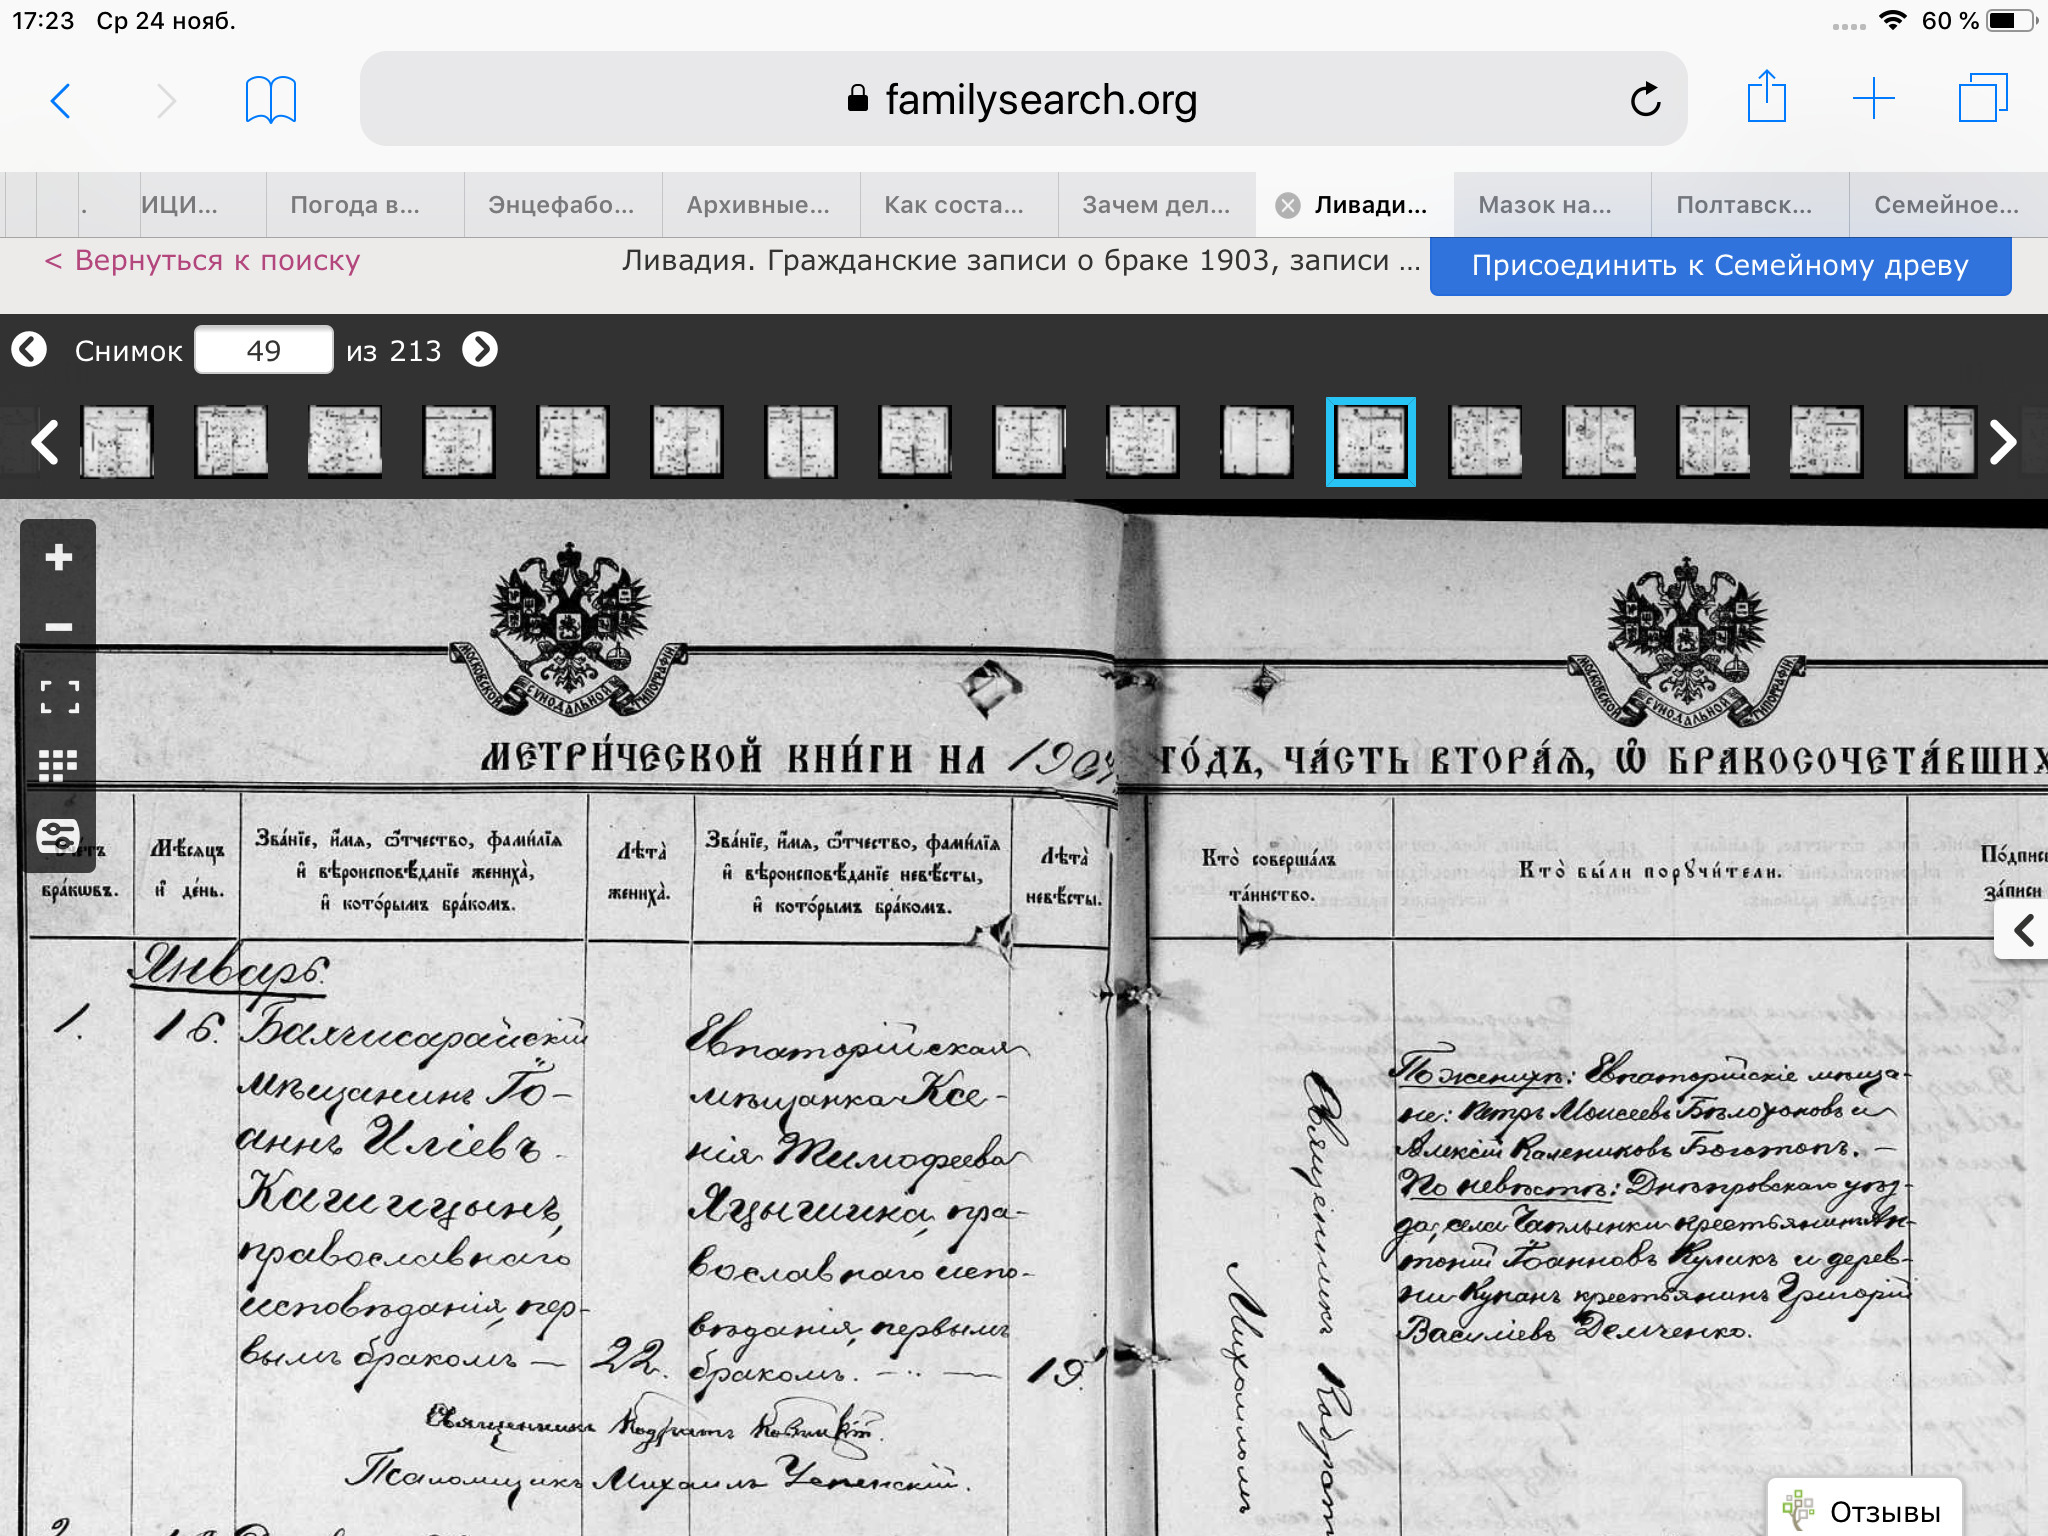 17:23 Ср 24 нояб.
60 %
familysearch.org
.
ИЦИ...
Погода в...
Энцефабо...
Архивные...
Как соста...
Зачем дел...
Ливади...
Мазок на...
Полтавск...
Семейное...
< Вернуться к поиску
Ливадия. Гражданские записи о браке 1903, записи ...
Присоединить к Семейному древу
Снимок 49 из 213
МОСКОВСКОЙ СУНОДАЛЬНОЙ ТИПОГРАФІИ
МОСКОВСКОЙ СУНОДАЛЬНОЙ ТИПОГРАФІИ
МЕТРИ́ЧЕСКОЙ КНИ́ГИ НА 1904 ГО́ДЪ, ЧА́СТЬ ВТОРА́Ѧ, Ѽ БРАКОСОЧЕТА́ВШИХ
бра́кωвъ.
Мѣ́сяцъ
и҆ де́нь.
Зва́нїе, и҆́мя, ѻ҆́тчество, фами́лїя
и҆ вѣроисповѣ́данїе жениха̀,
и҆ кото́рымъ бра́комъ.
Лѣта̀
жениха̀.
Зва́нїе, и҆́мя, ѻ҆́тчество, фами́лїя
и҆ вѣроисповѣ́данїе невѣ́сты,
и҆ кото́рымъ бра́комъ.
Лѣта̀
невѣ́сты.
Кто̀ соверша́лъ
та́инство.
Кто̀ бы́ли порꙋчи́тели.
По́дпис
за́писи
Январь.
1.
16.
Бахчисарайскій
мѣщанинъ Іо-
аннъ Иліевъ
Кашицынъ,
православнаго
исповѣданія, пер-
вымъ бракомъ —
22.
Евпаторійская
мѣщанка Ксе-
нія Тимофеева
Яцышина, пра-
вославнаго испо-
вѣданія, первымъ
бракомъ. —
19.
Священникъ Кодратъ
Михаиломъ
По женихѣ: Евпаторійскіе мѣща-
не: Петръ Моисеевъ Бѣлоконовъ и
Алексій Калениковъ Боготопъ. —
По невѣстѣ: Днѣпровскаго уѣз-
да, села Чаплынки крестьянинъ Ан-
тоній Іоанновъ Куликъ и дерев-
ни Купанъ крестьянинъ Григорій
Василіевъ Демченко.
Священникъ Кодратъ
Псаломщикъ Михаилъ Успенскій.
2.
Отзывы